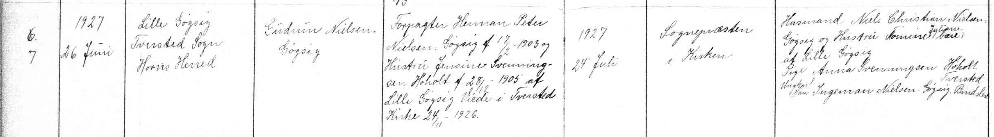 6.
7
1927
26 Juni
Lille Gögsig
Tversted Sogn
Horns Herred
Gudrun Nielsen
Gögsig
Forpagter Herman Peter
Nielsen, Gögsig f 17/2 - 1903 og
Hustru Jensine Svenning-
sen Hoholt f 28/1 - 1905 af
Lille Gögsig Viede i Tversted
Kirke 24/11 - 1926.
1927
24 Juli
Sognepræsten
i Kirken
Husmand Niels Christian Nielsen,
Gögsig og Hustru
af Lille Gögsig
Pige Anna Svenningsen Hoholt
Tversted
Ungkarl Ingeman Nielsen Gögsig